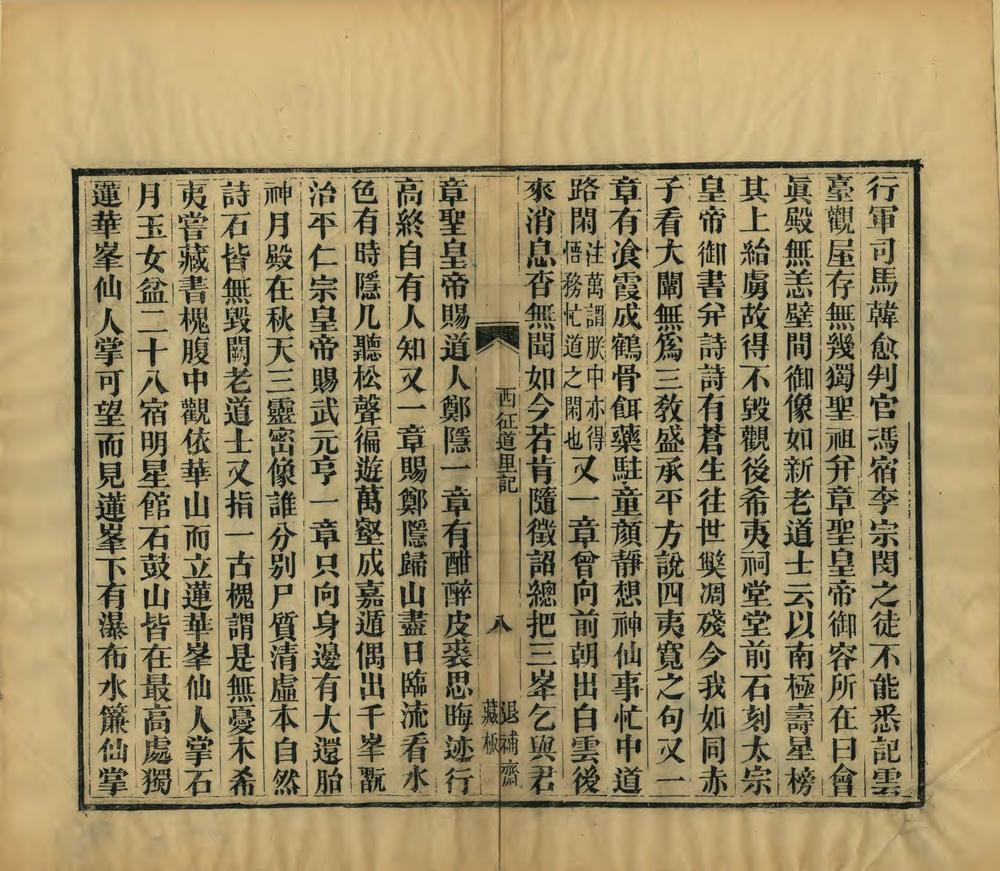 行軍司馬韓愈判官馮宿李宗閔之徒不能悉記雲
臺觀屋存無幾獨聖祖弁章聖皇帝御容所在曰會
眞殿無恙壁間御像如新老道士云以南極壽星榜
其上紿虜故得不毀觀後希夷祠堂堂前石刻太宗
皇帝御書弁詩詩有蒼生往世獘凋殘今我如同赤
子看大闡無爲三敎盛承平方說四夷寬之句又一
章有飡霞成鶴骨餌藥駐童顔靜想神仙事忙中道
路閑注萬謂朕中亦得悟務忙道之閑也又一章曾向前朝出白雲後
來消息杳無聞如今若肯隨徵詔總把三峯乞與君
西征道里記 八 退補齋藏板
章聖皇帝賜道人鄭隱一章有酣醉皮裘思晦迹行
高終自有人知又一章賜鄭隱歸山盡日臨流看水
色有時隱几聽松聲徧遊萬壑成嘉遁偶出千峯翫
治平仁宗皇帝賜武元亨一章只向身邊有大還胎
神月殿在秋天三靈密像誰分别尸質清虛本自然
詩石皆無毀闕老道士又指一古槐謂是無憂木希
夷嘗藏書槐腹中觀依華山而立蓮華峯仙人掌石
月玉女盆二十八宿明星館石鼓山皆在最高處獨
蓮華峯仙人掌可望而見蓮峯下有瀑布水簾仙掌